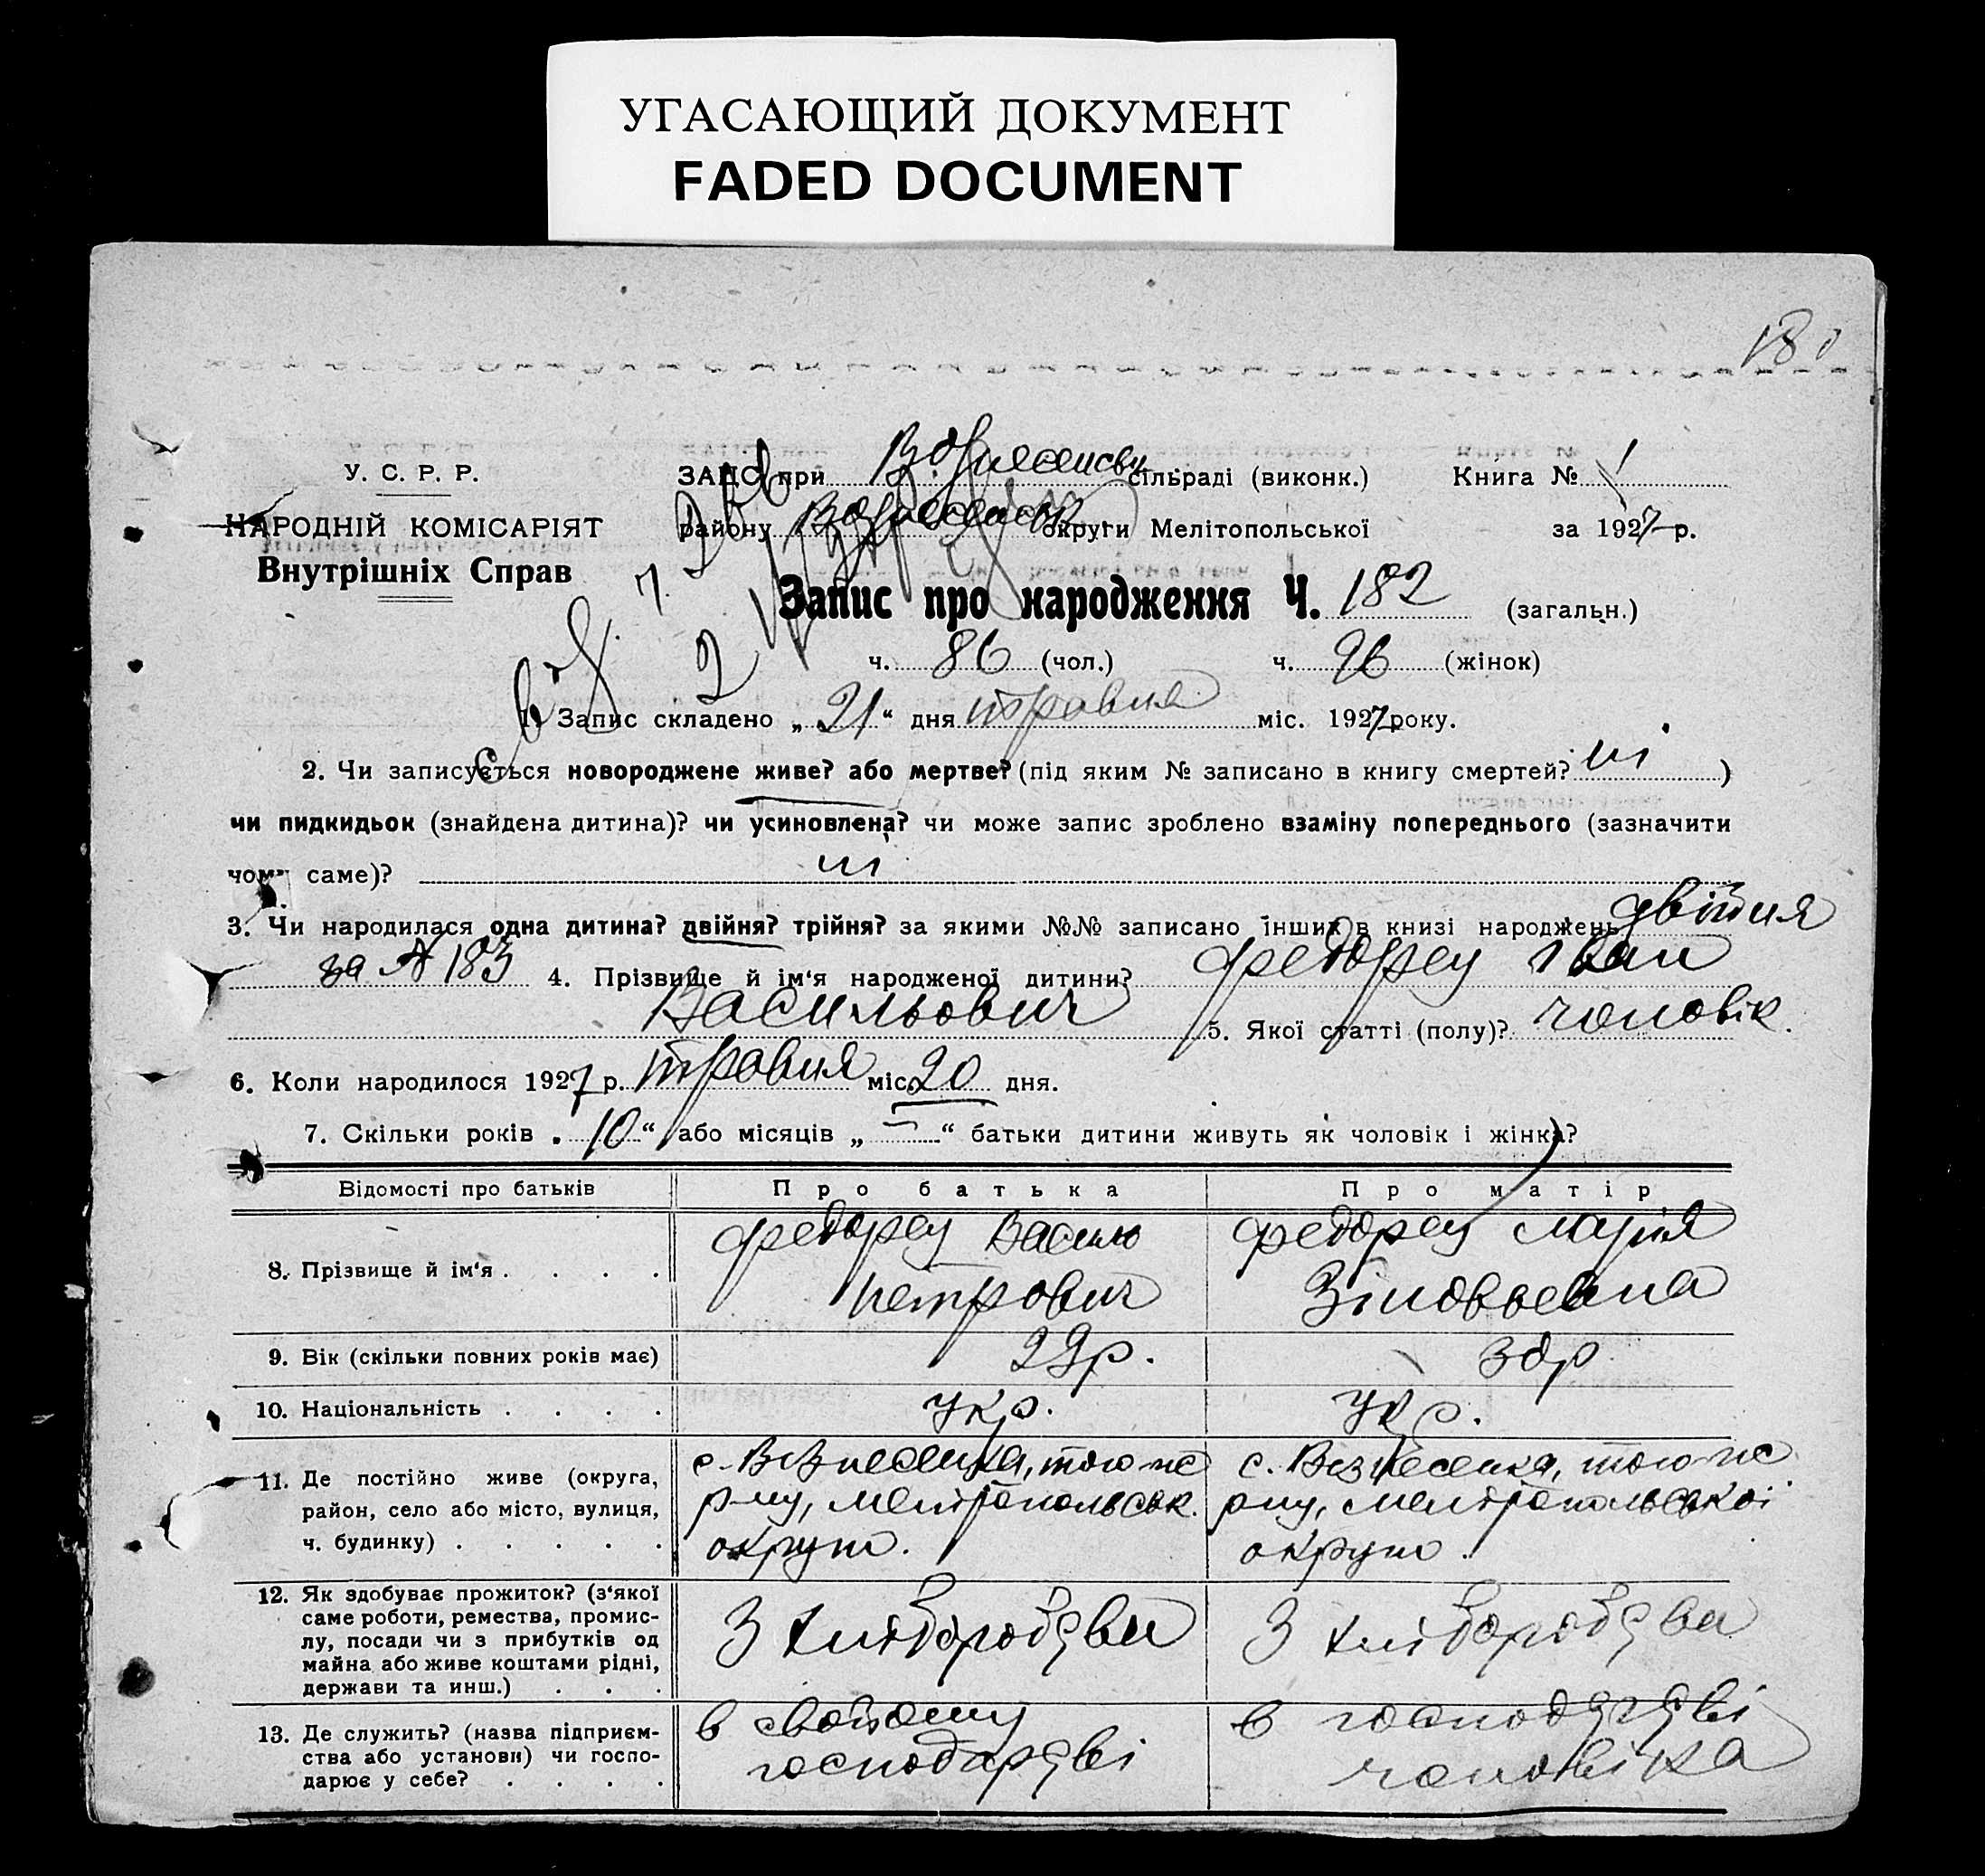 УГАСАЮЩИЙ ДОКУМЕНТ
FADED DOCUMENT
180
У. С. Р. Р.
НАРОДНІЙ КОМІСАРІЯТ
Внутрішніх Справ
ЗАПС при Вознесенск сільраді (виконк.) Книга № 1
району Вознесенськ округи Мелітопольської за 1927 р.
Запис про народження Ч. 182 (загальн.)
ч. 86 (чол.) ч. 96 (жінок)
1. Запис складено „ 21 “ дня травня міс. 1927 року.
2. Чи записується новороджене живе? або мертве? (під яким № записано в книгу смертей? ні )
чи пидкидьок (знайдена дитина)? чи усиновлена? чи може запис зроблено взаміну попереднього (зазначити
чому саме)? ні
3. Чи народилася одна дитина? двійня? трійня? за якими №№ записано інших в книзі народжень двійня
за № 183 4. Прізвище й ім'я народженої дитини? Федорец Іван
Васильович 5. Якої статті (полу)? чоловік.
6. Коли народилося 1927 р. травня міс. 20 дня.
7. Скільки років „ 10 “ або місяців „ — “ батьки дитини живуть як чоловік і жінка?
Відомості про батьків Про батька Про матір
8. Прізвище й ім'я . . . . Федорец Василь Петрович Федорец Марія Зіновьевна
9. Вік (скільки повних років має) 29р. 30р
10. Національність . . . . Укр. Укр.
11. Де постійно живе (округа, район, село або місто, вулиця, ч. будинку) . . . . .
с. Вознесенка, того-же р-ну, Мелітопольськ. округи.
с. Вознесенка, того-же р-ну, Мелітопольскоі округи.
12. Як здобуває прожиток? (з'якої саме роботи, ремества, промислу, посади чи з прибутків од майна або живе коштами рідні, держави та инш.) . . .
З хліборобства З хліборобства
13. Де служить? (назва підприємства або установи) чи господарює у себе? . . . .
в свойому господарстві
в господарстві чоловіка